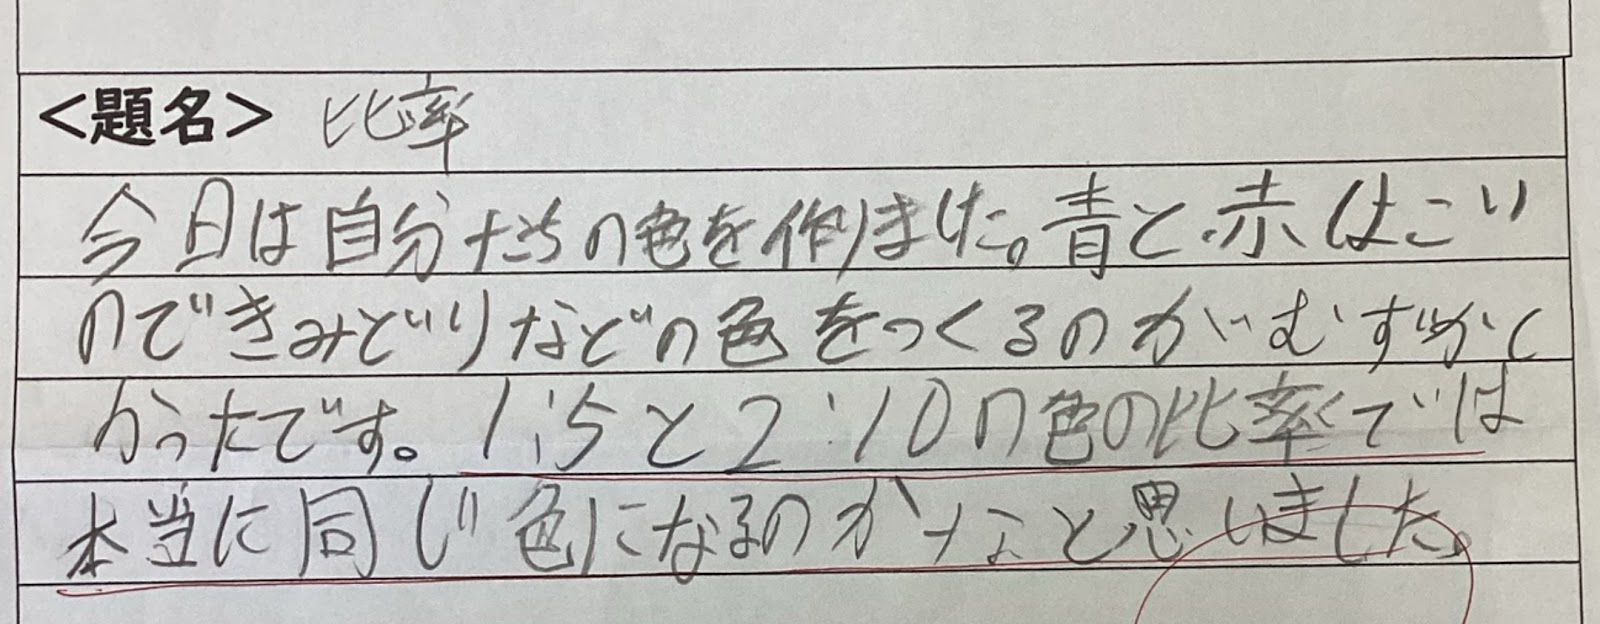 <題名> 比率
今日は自分たちの色を作りました。青と赤はこい
のできみどりなどの色をつくるのがむずかし
かったです。1:5と2:10の色の比率では
本当に同じ色になるのかなと思いました。